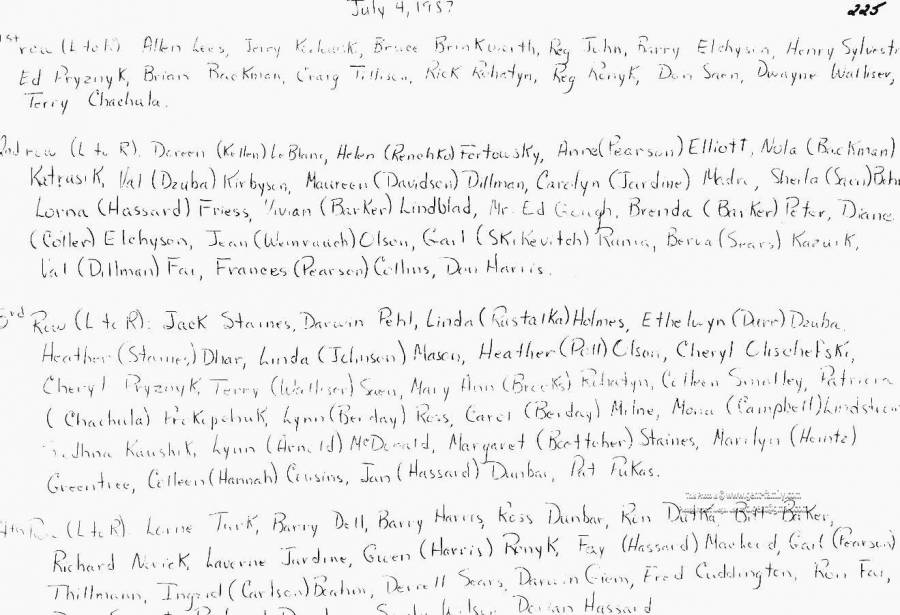 July 4, 1987 225
1st row (L to R) Allen Lees, Jerry Bruce Brinkworth, Reg John, Barry Elchyson, Henry Sylvestr
Ed Pryznyk, Brian Backman, Craig Tillison, Rick Rohatyn, Reg Ronyk, Don Saen, Dwayne Walliser,
Terry Chachula.
2nd row (L to R). Doreen (Kellen) LeBlanc, Helen (Renohko) Fertowsky, Anne (Pearson) Elliott, Nola (Backman)
Ketrasik, Val (Dzuba) Kirbyson, Maureen (Davidson) Dillman, Carolyn (Jardine) Madra, Sheila (Saen)
Lorna (Hassard) Friess, Vivian (Barker) Lindblad, Mr. Ed Gough, Brenda (Barker) Peter, Diane
(Coller) Elchyson, Jean (Weinrauch) Olson, Gail (Skikevitch) Rania, Berva (Sears) Kazuik,
Val (Dillman) Fai, Frances (Pearson) Collins, Don Harris.
3rd Row (L to R): Jack Staines, Darwin Pehl, Linda (Rustalka) Holmes, Ethelwyn (Durr) Dzuba
Heather (Staines) Dhar, Linda (Johnson) Mason, Heather (Pell) Olson, Cheryl Olischefski,
Cheryl Pryznyk, Terry (Walliser) Saen, Mary Ann (Brooks) Rohatyn, Colleen Smalley, Patricia
(Chachula) Prokopchuk, Lynn (Berday) Ross, Carol (Berday) Milne, Mona (Campbell) Lindstrom
Kaushik, Lynn (Arnold) McDonald, Margaret (Boettcher) Staines, Marilyn (Heintz)
Greentree, Colleen (Hannah) Cousins, Jan (Hassard) Dunbar, Pat Pukas.
4th Row (L to R). Lorne Turk, Barry Dell, Barry Harris, Ross Dunbar, Ron Dutka, Bill Barker,
Richard Novick, Laverne Jardine, Gwen (Harris) Ronyk, Fay (Hassard) Macleod, Gail (Pearson)
Thillmann, Ingrid (Carlson) Beahm, Derrell Sears, Darwin Giem, Fred Cuddington, Ron Fai,
Dorian Hassard